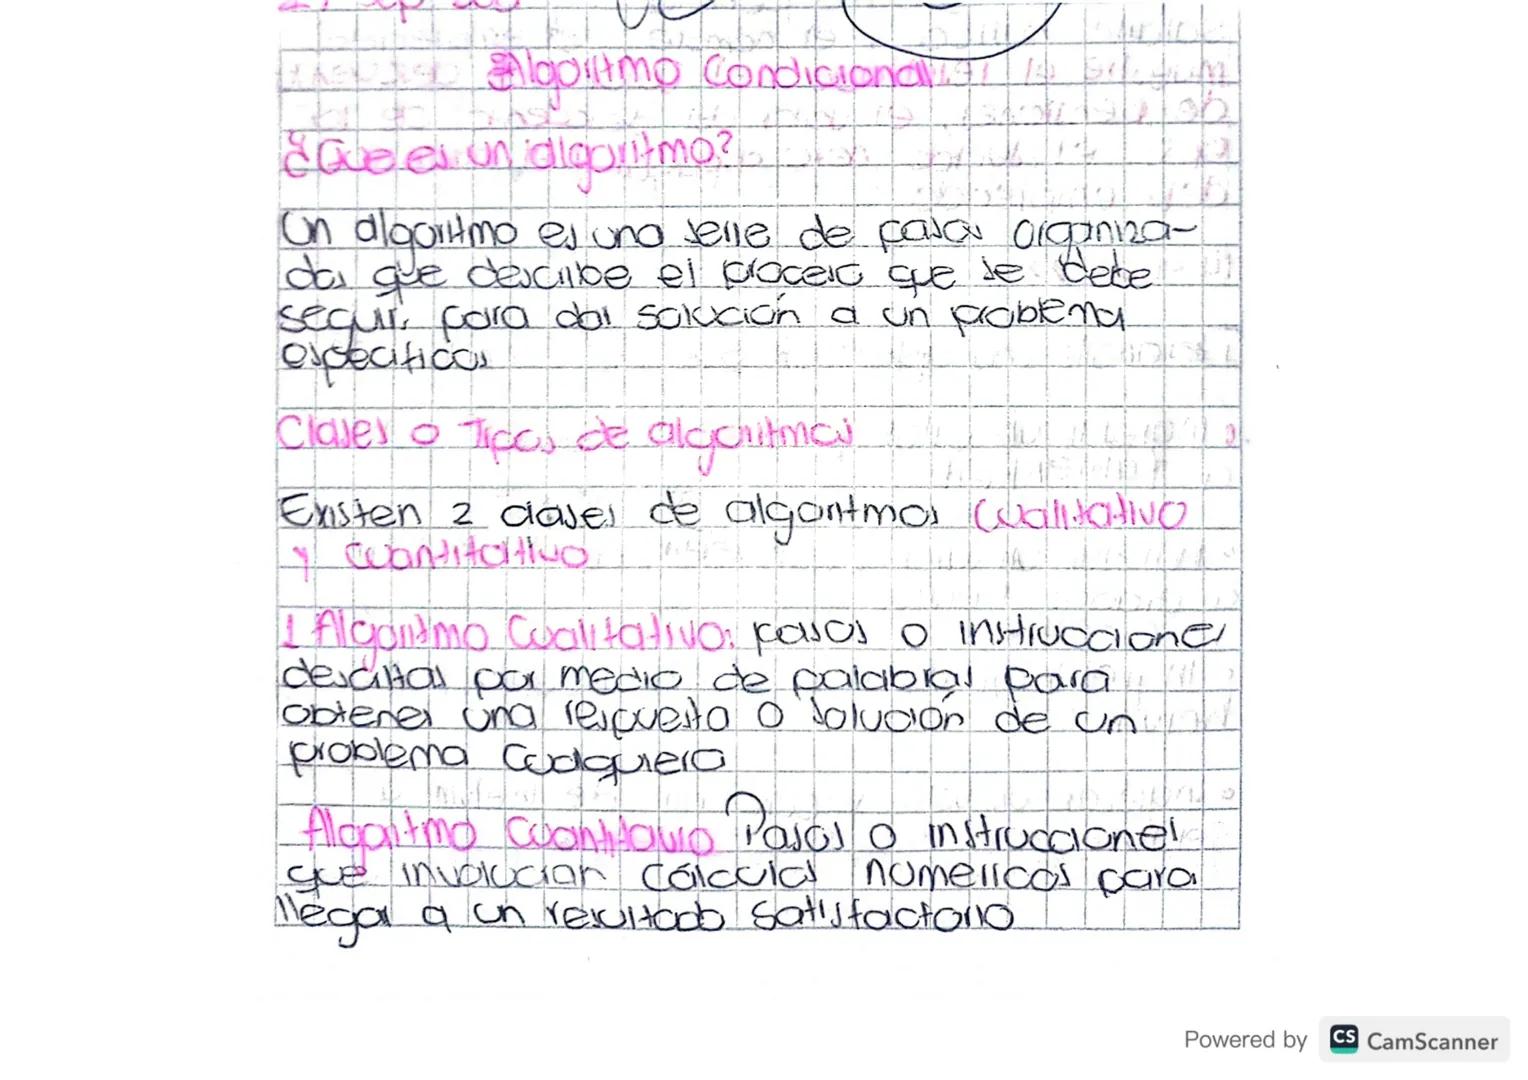 Algoritmo Condicional
¿Que es un algoritmo?
Un algoritmo es una serie de pasos organiza-
dos que describe el proceso que se debe
seguir, para dar solución a un problema
especificos
Clases o Tipos de algoritmos
Existen 2 clases de algoritmos Cualitativo
y cuantitativo
1 Algoritmo Cualitativo: pasos o instrucciones
descritas por medio de palabras para
obtener una respuesta o solución de un
problema Cualquiera
Algoritmo Cuantitativo Pasos o instrucciones
que involucran cálculos numericos para
llegar a un resultado satisfactorio
Powered by CS CamScanner